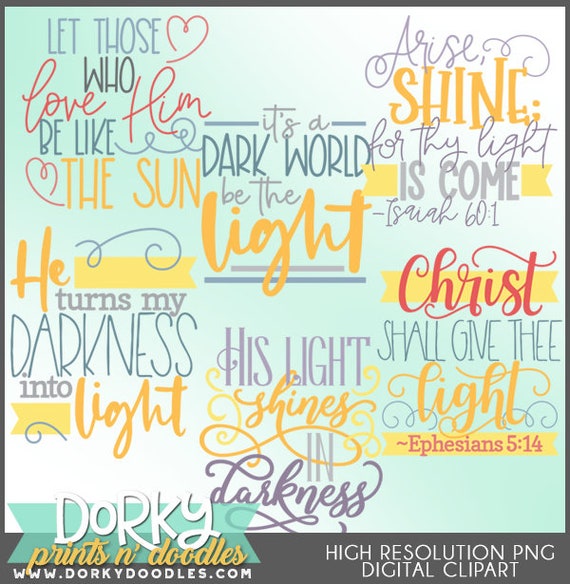 LET THOSE
WHO
love Him
BE LIKE
THE SUN
it's a
DARK WORLD
be the
light
Arise,
SHINE;
for thy light
IS COME
-Isaiah 60:1
He
turns my
DARKNESS
into
light
HIS LIGHT
shines
IN
darkness
Christ
SHALL GIVE THEE
light
~Ephesians 5:14
DORKY
prints n' doodles
WWW.DORKYDOODLES.COM
HIGH RESOLUTION PNG
DIGITAL CLIPART